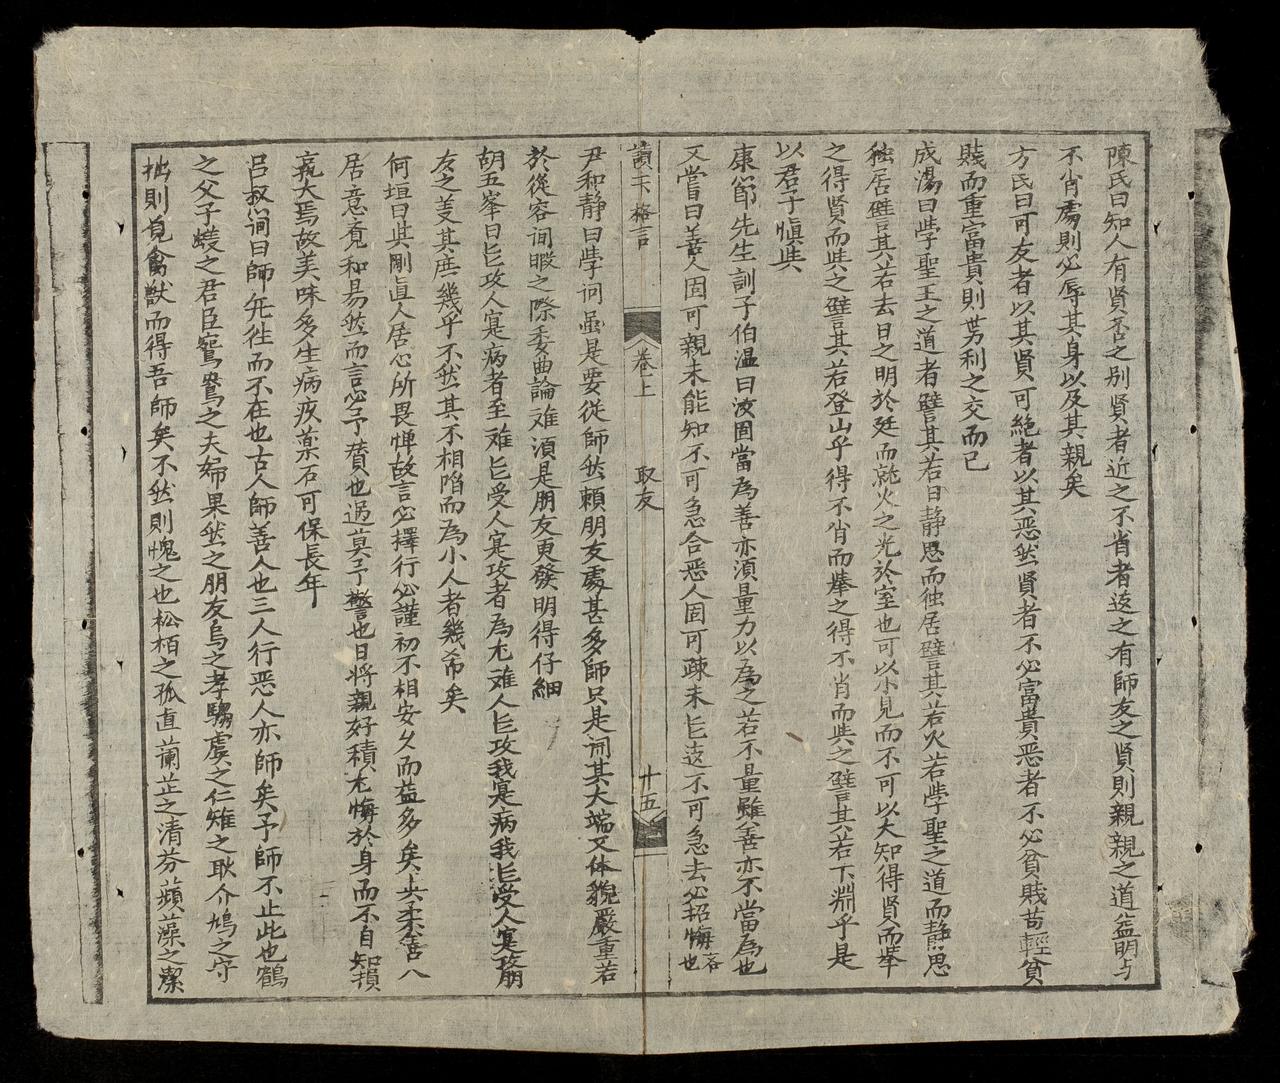 陳氏曰知人有賢否之別賢者近之不肖者逺之有師友之賢則親親之道益明与
不肖處則必辱其身以及其親矣
方氏曰可友者以其賢可絶者以其恶然賢者不必富貴恶者不必貧賎苟輕貧
賎而重富貴則势利之交而已
成湯曰學聖王之道者譬其若日静思而独居譬其若火若學聖之道而静思
独居譬其若去日之明於廷而就火之光於室也可以小見而不可以大知得賢而舉
之得賢而與之譬其若登山乎得不肖而舉之得不肖而與之譬其若下淵乎是
以君子慎與
康節先生訓子伯温曰汝固當為善亦湏量力以為之若不量雖善亦不當為也
又嘗曰善人固可親未能知不可急合恶人固可疎未能逺不可急去必招悔吝也
格言
卷上
取友
十五
尹和静曰學问虽是要從師然賴朋友處甚多師只是问其大端又体貌嚴重若
於從容间暇之際委曲論难湏是朋友更發明得仔細
胡五峯曰能攻人寔病者至难能受人寔攻者為尤难人能攻我寔病我能受人寔攻朋
友之义其庶幾乎不然其不相陷而為小人者幾希矣
何垣曰與剛直人居心所畏憚故言必擇行必謹初不相安久而益多矣與柔善人
居意覔和易然而言必予賛也過莫予警也日将親好積尤悔於身而不自知損
孰大焉故美味多生病疾薬石可保長年
吕叔简曰師无徃而不在也古人師善人也三人行恶人亦師矣予師不止此也鶴
之父子蟻之君臣鴛鴦之夫婦果然之朋友烏之孝騶虞之仁雉之耿介鳩之守
拙則覔禽獸而得吾師矣不然則愧之也松栢之孤直蘭芷之清芬蘋藻之潔